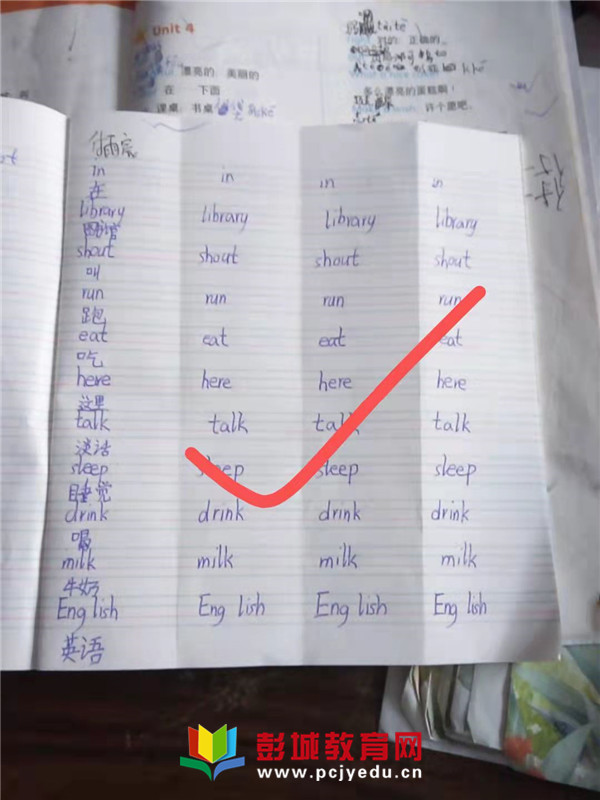 Unit 4
漂亮的 美丽的
在 下面
课桌 书桌
对的 正确的
多么漂亮的蛋糕啊!
许个愿吧。
in in in in
在
library library library library
图书馆
shout shout shout shout
叫
run run run run
跑
eat eat eat eat
吃
here here here here
这里
talk talk talk talk
谈话
sleep sleep sleep sleep
睡觉
drink drink drink drink
喝
milk milk milk milk
牛奶
Eng lish Eng lish Eng lish Eng lish
英语
彭城教育网
www.pcjyedu.cn